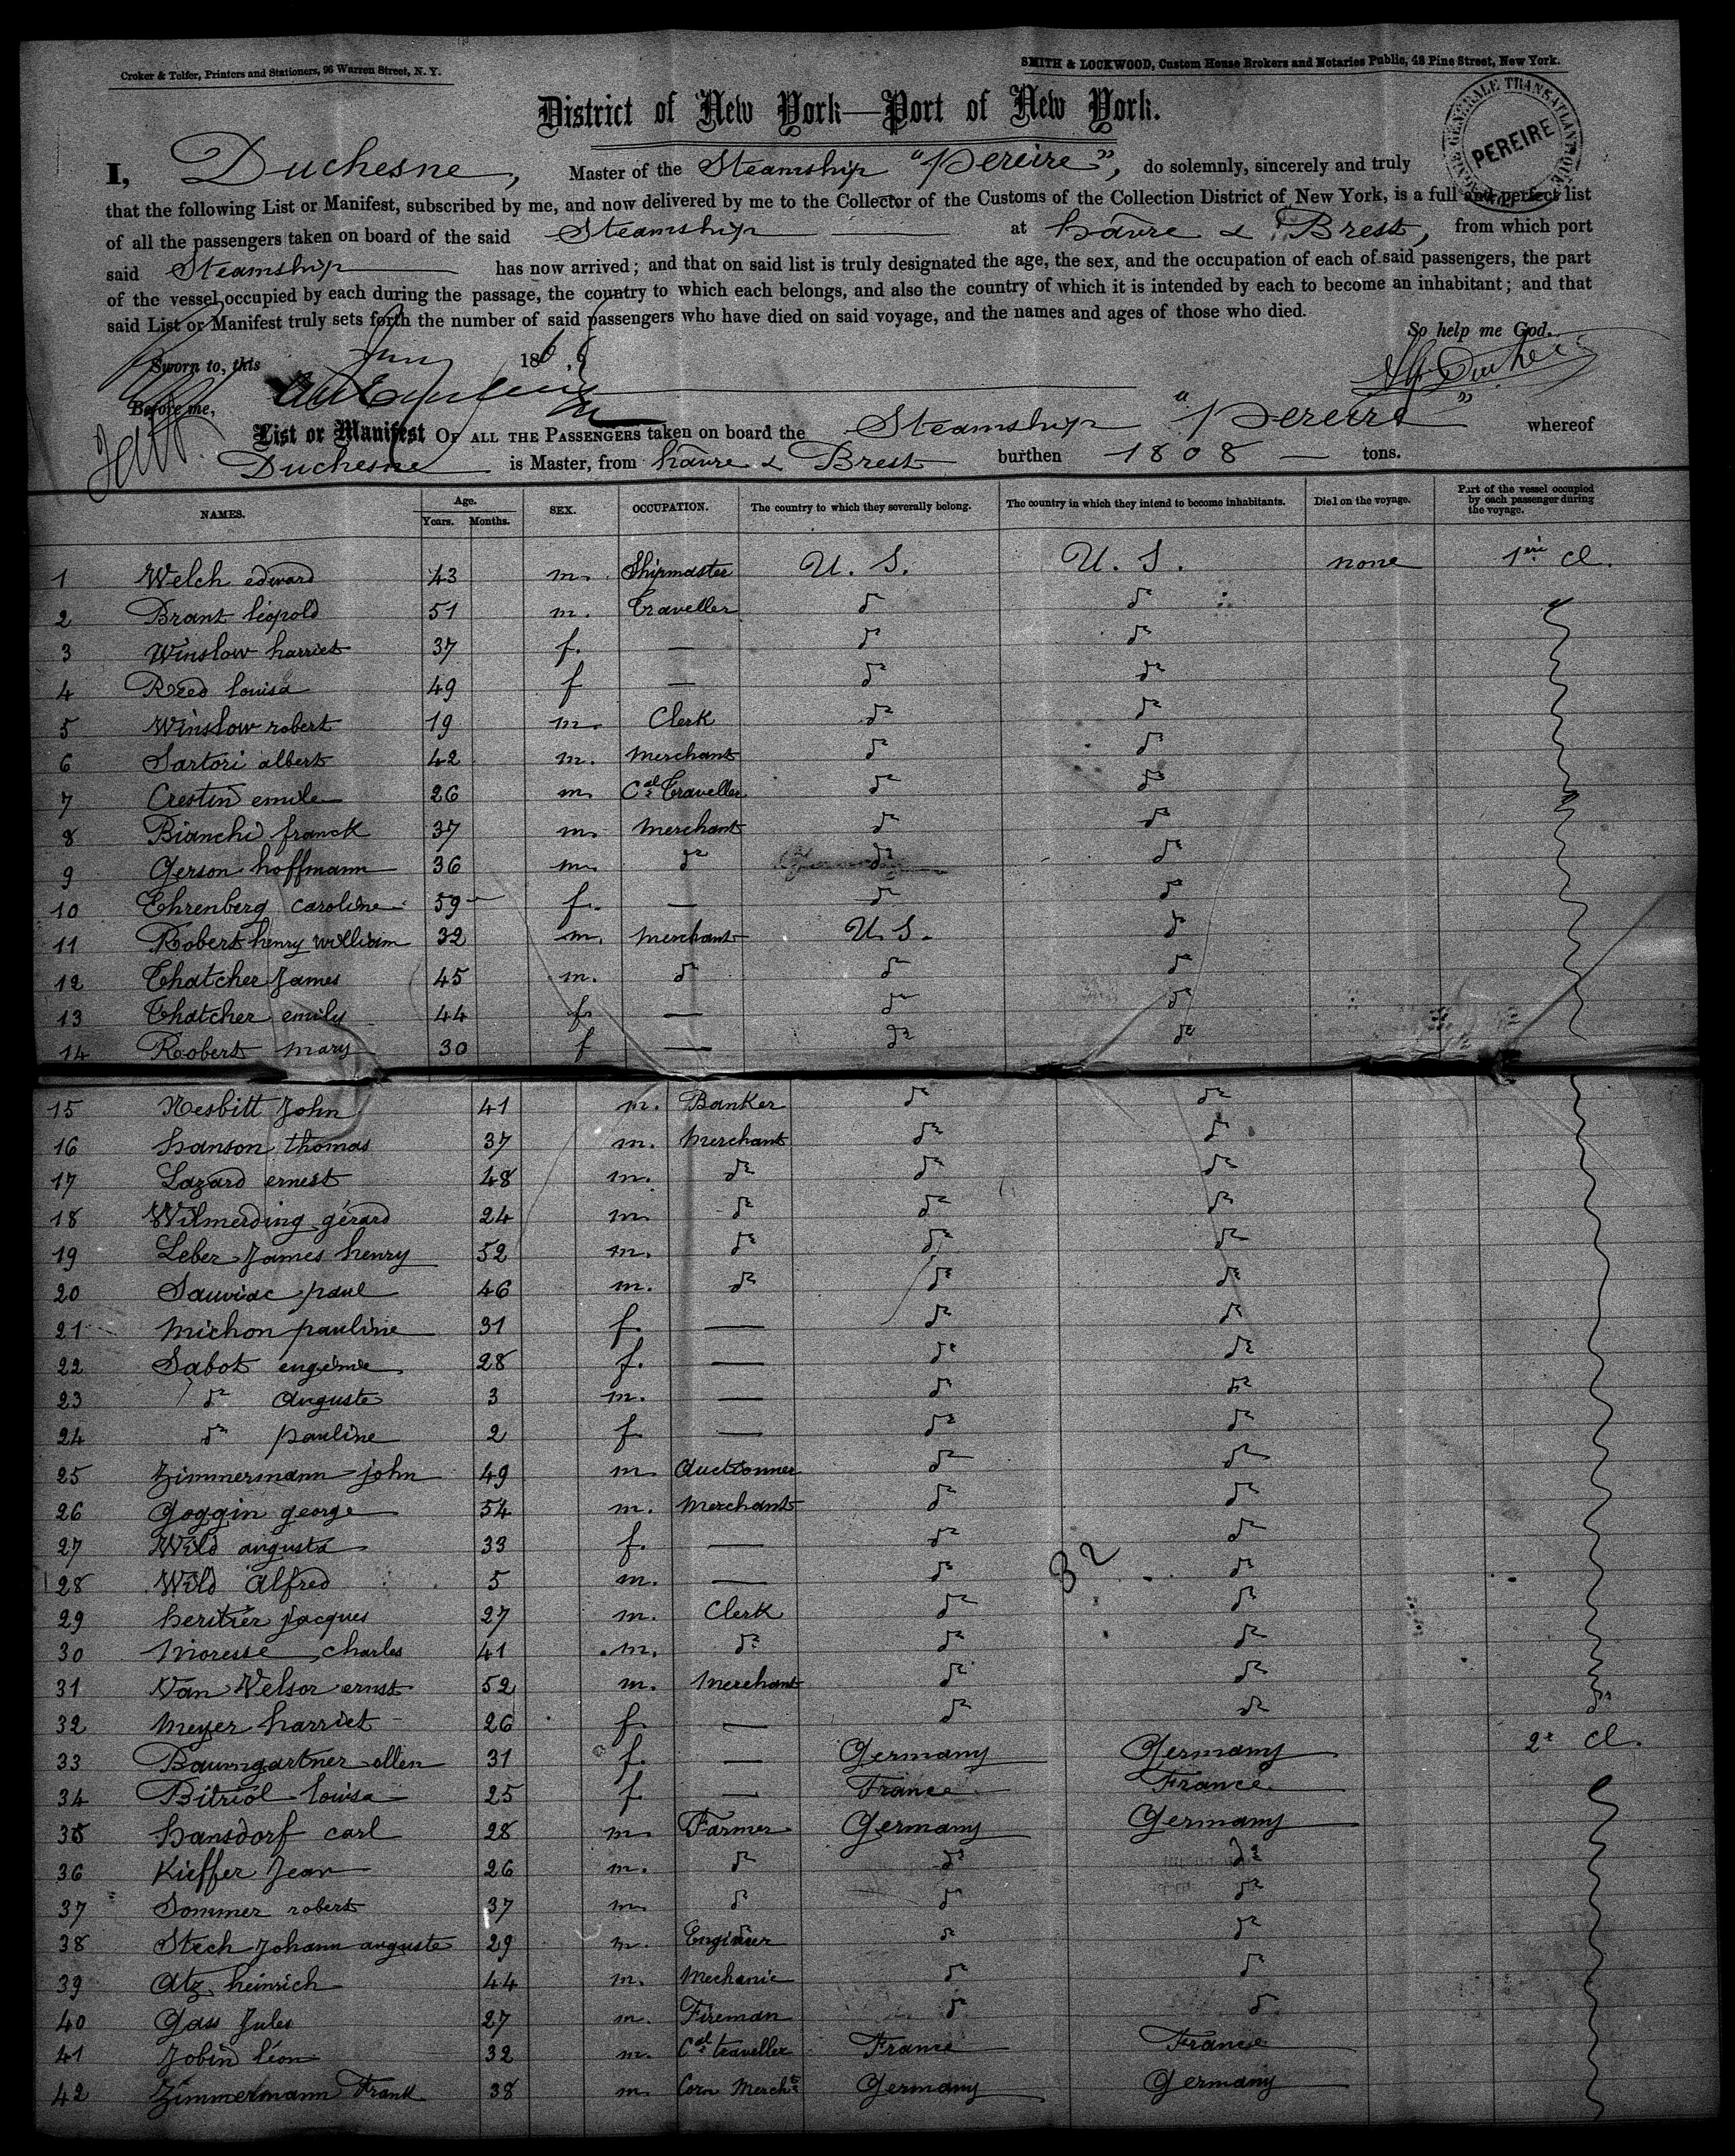 Croker & Telfer, Printers and Stationers, 96 Warren Street, N. Y.
SMITH & LOCKWOOD, Custom House Brokers and Notaries Public, 48 Pine Street, New York.
District of New York—Port of New York.
PEREIRE
I, Duchesne, Master of the Steamship "Pereire", do solemnly, sincerely and truly
that the following List or Manifest, subscribed by me, and now delivered by me to the Collector of the Customs of the Collection District of New York, is a full and perfect list
of all the passengers taken on board of the said Steamship at havre & Brest, from which port
said Steamship has now arrived; and that on said list is truly designated the age, the sex, and the occupation of each of said passengers, the part
of the vessel occupied by each during the passage, the country to which each belongs, and also the country of which it is intended by each to become an inhabitant; and that
said List or Manifest truly sets forth the number of said passengers who have died on said voyage, and the names and ages of those who died.
So help me God.
Sworn to, this 186
Before me,
List or Manifest OF ALL THE PASSENGERS taken on board the Steamship "Pereire" whereof
Duchesne is Master, from havre & Brest burthen 1808 tons.
NAMES. Age. Years. Months. SEX. OCCUPATION. The country to which they severally belong. The country in which they intend to become inhabitants. Died on the voyage. Part of the vessel occupied by each passenger during the voyage.
1 Welch edward 43 m. Shipmaster U. S. U. S. none 1ere cl.
2 Brant léopold 51 m. Traveller do do
3 Winslow harriet 37 f. — do do
4 Reed louisa 49 f — do do
5 Winslow robert 19 m. Clerk do do
6 Sartori albert 42 m. merchant do do
7 Crestin emile 26 m. Cal Traveller do do
8 Bianchi franck 37 m. merchant do do
9 Gerson hoffmann 36 m. do do do
10 Ehrenberg caroline 59 f. — do do
11 Robert henry william 32 m. merchant U. S. do
12 Thatcher James 45 m. do do do
13 Thatcher emily 44 f. — do do
14 Robert mary 30 f — do do
15 Nesbitt John 41 m. Banker do do
16 hanson thomas 37 m. merchant do do
17 Lazard ernest 48 m. do do do
18 Wilmerding gérard 24 m. do do do
19 Leber James henry 52 m. do do do
20 Sauviac paul 46 m. do do do
21 michon pauline 31 f. — do do
22 Sabot eugénie 28 f. — do do
23 do auguste 3 m. — do do
24 do pauline 2 f. — do do
25 Zimmermann john 49 m. auctionner do do
26 Goggin george 54 m. merchant do do
27 Wild augusta 33 f. — do do
28 Wild Alfred 5 m. — do 32 do
29 heritier jacques 27 m. Clerk do do
30 moresse charles 41 m. do do do
31 Van Velsor ernst 52 m. merchant do do
32 meyer harriet 26 f. — do do do
33 Baumgartner ellen 31 f. — Germany Germany 2e cl.
34 Bitriol louisa 25 f. — France France
35 hansdorf carl 28 m. Farmer Germany Germany
36 Kieffer Jean 26 m. do do do
37 Sommer robert 37 m. do do do
38 Stech Johann auguste 29 m. Engineer do do
39 Atz heinrich 44 m. mechanic do do
40 Gass Jules 27 m. Fireman do do
41 Jobin léon 32 m. Cal traveller France France
42 Zimmermann Frank 38 m. Corn Mercht Germany Germany